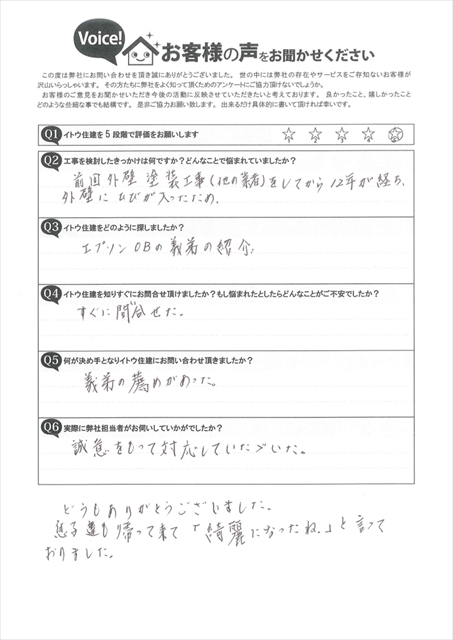 Voice!
お客様の声をお聞かせください
この度は弊社にお問い合わせを頂き誠にありがとうございました。 世の中には弊社の存在やサービスをご存知ないお客様が
沢山いらっしゃいます。 その方たちに弊社をよく知って頂くためのアンケートにご協力頂けないでしょうか。
お客様のご意見をお聞かせいただき今後の活動に反映させていきたいと考えております。 良かったこと、嬉しかったこと
どのような些細な事でも結構です。 是非ご協力お願い致します。 出来るだけ具体的に書いて頂ければ幸いです。
Q1 イトウ住建を5段階で評価をお願いします
☆ ☆ ☆ ☆ ☆
Q2 工事を検討したきっかけは何ですか？どんなことで悩まれていましたか？
前回外壁塗装工事(他の業者)をしてから12年が経ち、
外壁にひびが入ったため。
Q3 イトウ住建をどのように探しましたか？
エプソンOBの義弟の紹介
Q4 イトウ住建を知りすぐにお問合せ頂けましたか？もし悩まれたとしたらどんなことがご不安でしたか？
すぐに問合せた。
Q5 何が決め手となりイトウ住建にお問い合わせ頂きましたか？
義弟の薦めがあった。
Q6 実際に弊社担当者がお伺いしていかがでしたか？
誠意をもって対応していただいた。
どうもありがとうございました。
息子達も帰って来て「綺麗になったね。」と言って
おりました。